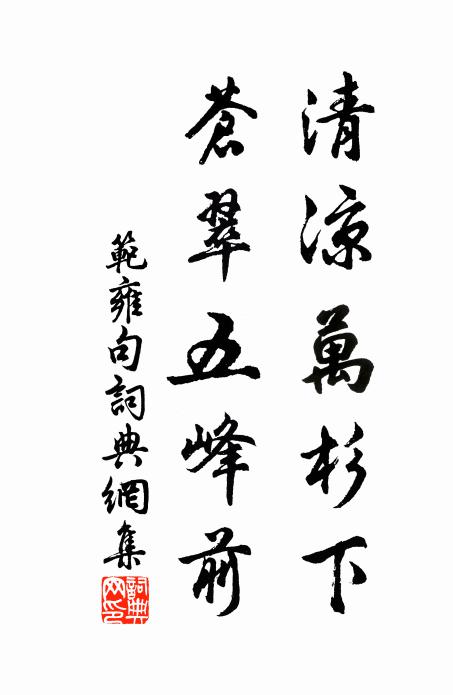 清涼萬杉下
蒼翠五峰前
範雍句詞典網集
詞典網印